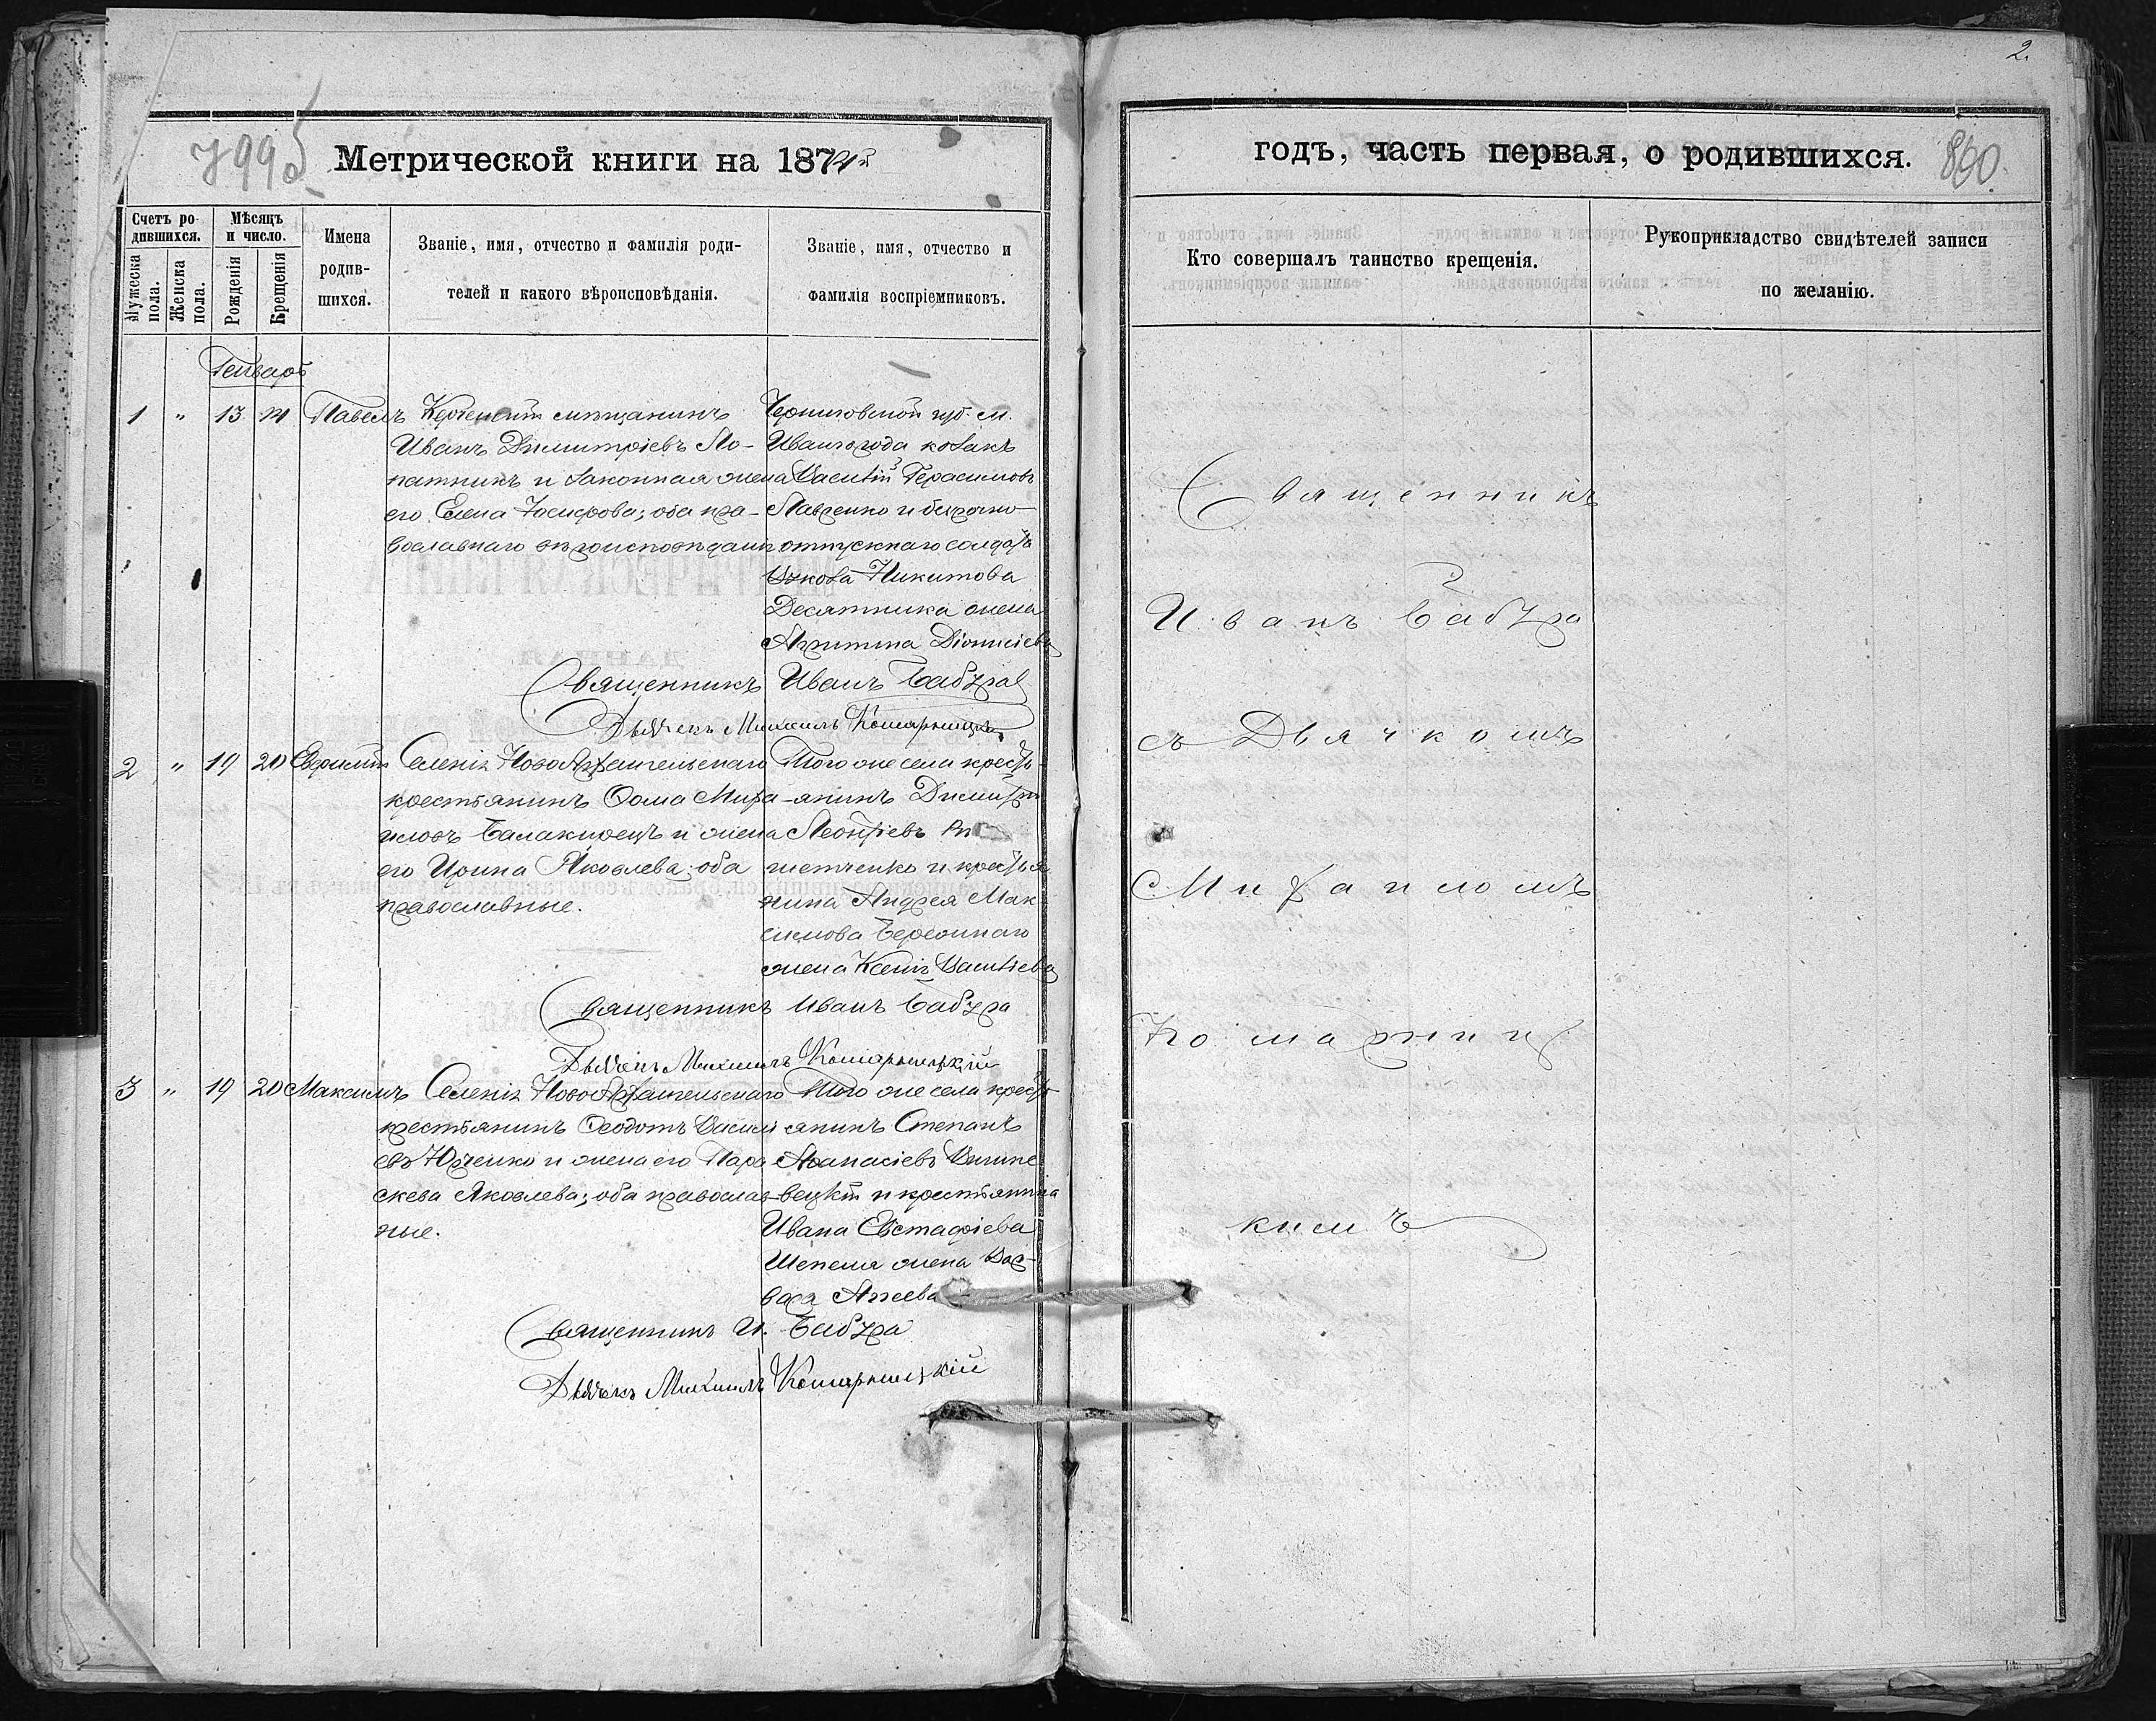 2.
799 об
Метрической книги на 1874й
годъ, часть первая, о родившихся.
800.
Счетъ ро-
дившихся.
Мужеска пола.
Женска пола.
Мѣсяцъ
и число.
Рожденія
Крещенія
Имена
родив-
шихся.
Званіе, имя, отчество и фамилія роди-
телей и какого вѣроисповѣданія.
Званіе, имя, отчество и
фамилія воспріемниковъ.
Кто совершалъ таинство крещенія.
Рукоприкладство свидѣтелей записи
по желанію.
Генварь
1 " 13 14 Павелъ
мѣщанинъ
Иванъ Димитріевъ Ло-
патникъ и законная жена
его Елена Іосифова; оба пра-
вославнаго вѣроисповѣданія
Черниговской губ. м.
Ивангорода козакъ
Василій Герасимовъ
Лавренко и безсрочно-
отпускнаго солдата
Никитова
Десятника жена
Діонисіева
Священникъ Иванъ Бабура
Дьячекъ Михаилъ Комарницкій
2 " 19 20 Евфимій
Селенія НовоАрхангельскаго
крестьянинъ Ѳома Миха-
иловъ и жена
его Ирина Яковлева; оба
православные.
Того же села кресть-
янинъ Димитрій
Леонтіевъ
и крестья
нина Андрея Мак
симова
жена Ксенія Василіева
Священникъ Иванъ Бабура
Дьячекъ Михаилъ Комарницкій
3 " 19 20 Максимъ
Селенія НовоАрхангельскаго
крестьянинъ Ѳеодотъ Василі
евъ Юрченко и жена его Пара
скева Яковлева; оба православ-
ные.
Того же села кресть
янинъ Степанъ
Аѳанасіевъ
и крестьянина
Ивана Евстафіева
Шепеля жена Вар-
вара
Священникъ И. Бабура
Дьячекъ Михаилъ Комарницкій
Священникъ
Иванъ Бабура
съ Дьячкомъ
Михаиломъ
Комарниц
кимъ